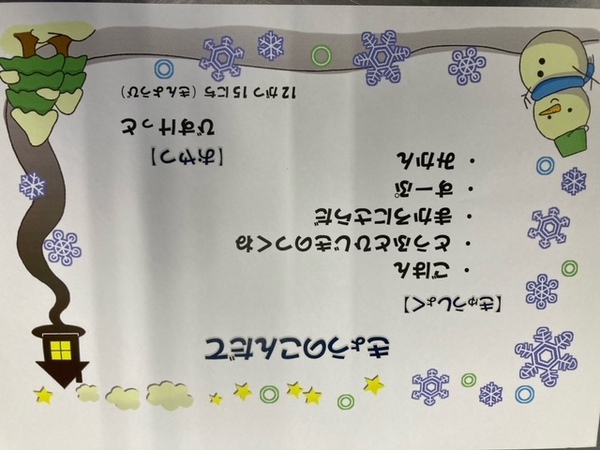 きょうのこんだて
【きゅうしょく】
・ ごはん
・ とうふとひじきのつくね
・ まかろにさらだ
・ すーぷ
・ みかん
【おやつ】
びすけっと
12がつ15にち（きんようび）